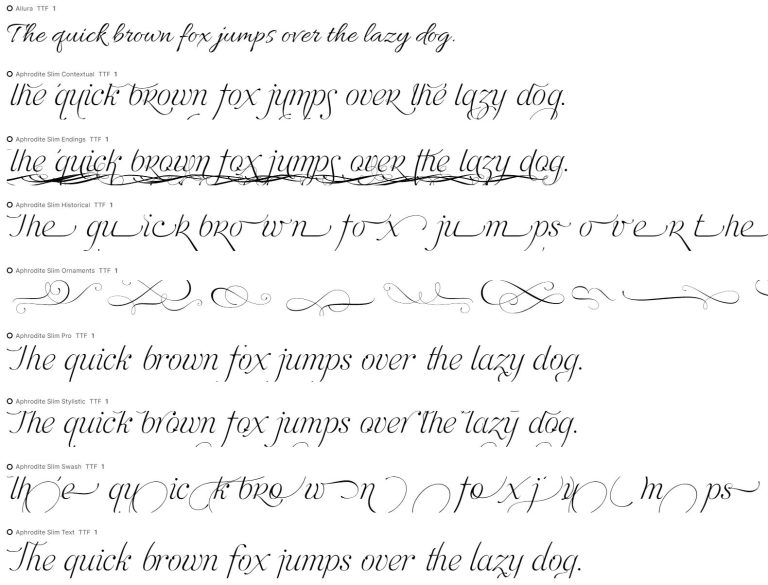 Allura TTF 1
The quick brown fox jumps over the lazy dog.
Aphrodite Slim Contextual TTF 1
The quick brown fox jumps over the lazy dog.
Aphrodite Slim Endings TTF 1
The quick brown fox jumps over the lazy dog.
Aphrodite Slim Historical TTF 1
The quick brown fox jumps over the
Aphrodite Slim Ornaments TTF 1
Aphrodite Slim Pro TTF 1
The quick brown fox jumps over the lazy dog.
Aphrodite Slim Stylistic TTF 1
The quick brown fox jumps over the lazy dog.
Aphrodite Slim Swash TTF 1
The quick brown fox jumps
Aphrodite Slim Text TTF 1
The quick brown fox jumps over the lazy dog.